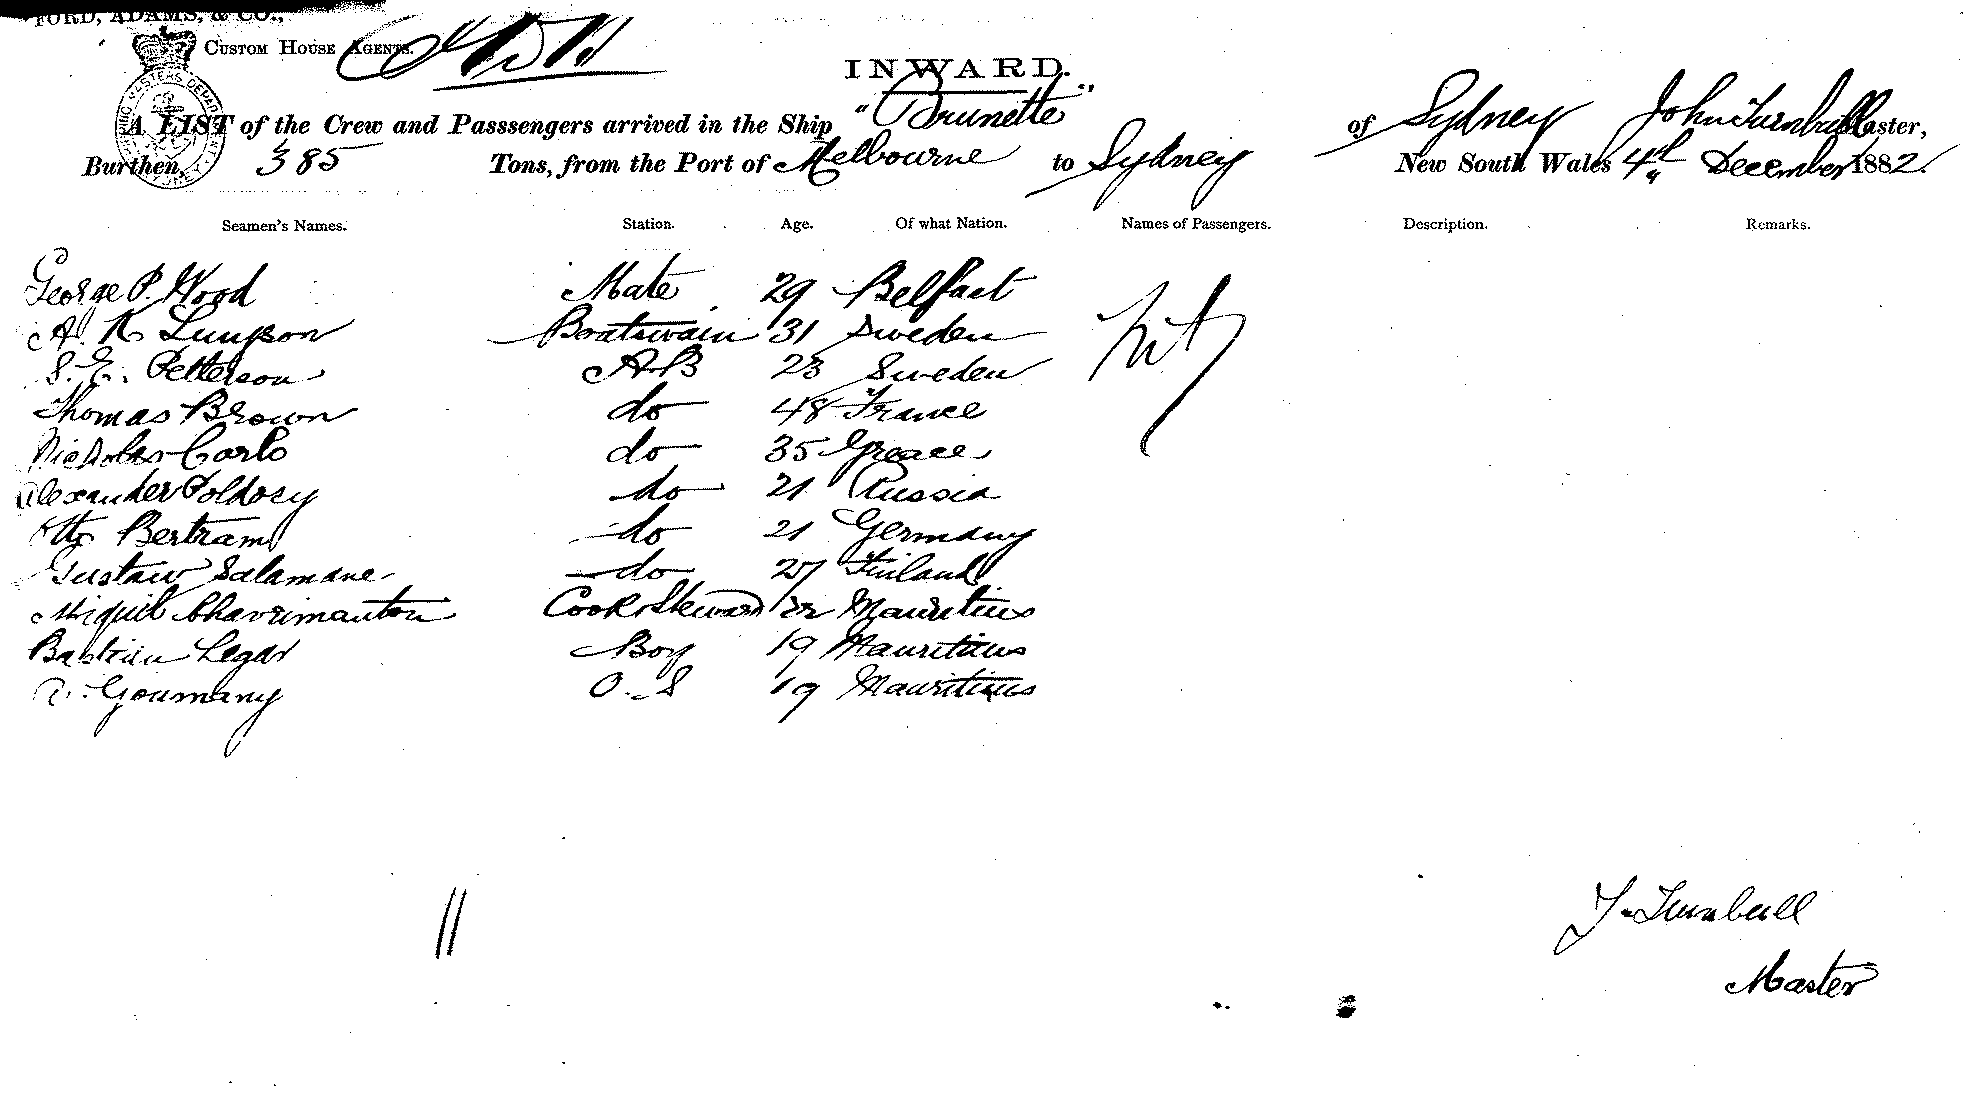 FORD, ADAMS, & CO.,
CUSTOM HOUSE AGENTS.
INWARD.
A LIST of the Crew and Passsengers arrived in the Ship "Brunette" of Sydney John Turnbull Master,
Burthen, 385 Tons, from the Port of Melbourne to Sydney New South Wales 4th December 1882.
Seamen's Names. Station. Age. Of what Nation. Names of Passengers. Description. Remarks.
George P. Wood Mate 29 Belfast
A. K. Boatswain 31 Sweden
S. E. Petterson AB 23 Sweden
Thomas Brown do 48 France
Nicholas Carlo do 35 Greace
Alexander Poldosy do 21 Russia
Otto Bertram do 21 Germany
Gustaw Salamane do 27 Finland
Cook & Steward 22 Mauritius
Bastien Legar Boy 19 Mauritius
Goumany O.S 19 Mauritius
J. Turnbull
Master